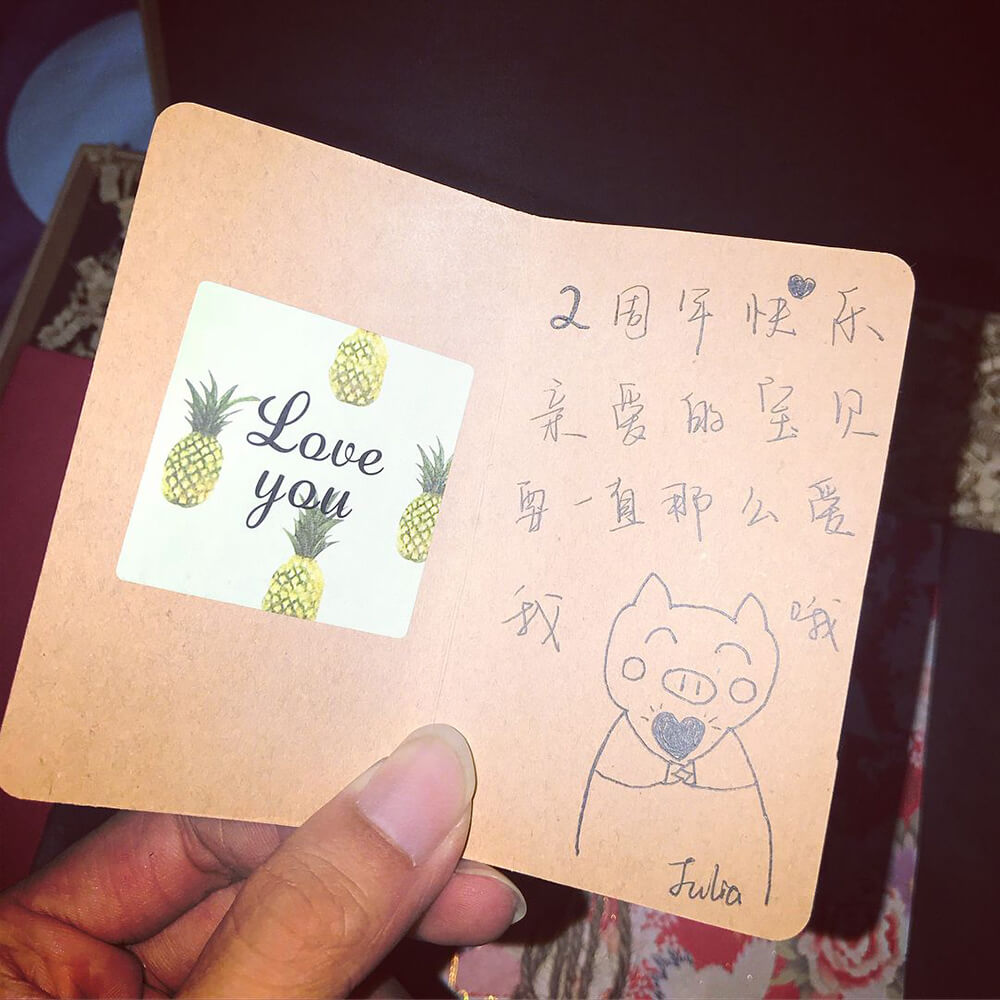 Love
you
2周年快乐
亲爱的宝贝
要一直那么爱
我 哦
Julia